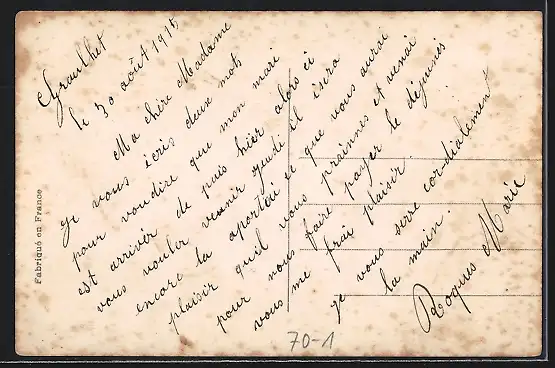 Graulhet
le 30 août 1915
Ma chère Madame
je vous écris deux mots
pour voudire que mon mari
est arriver de puis hiér alors si
vous vouler venir jeudi il isera
encore la aportér se que vous aurai
plaisir quil vous prainnes et venai
pour nous faire payer le déjeunés
vous me frai plaisir.
je vous serre cordialement
la main.
Roques Marie
Fabriqué en France
70-1